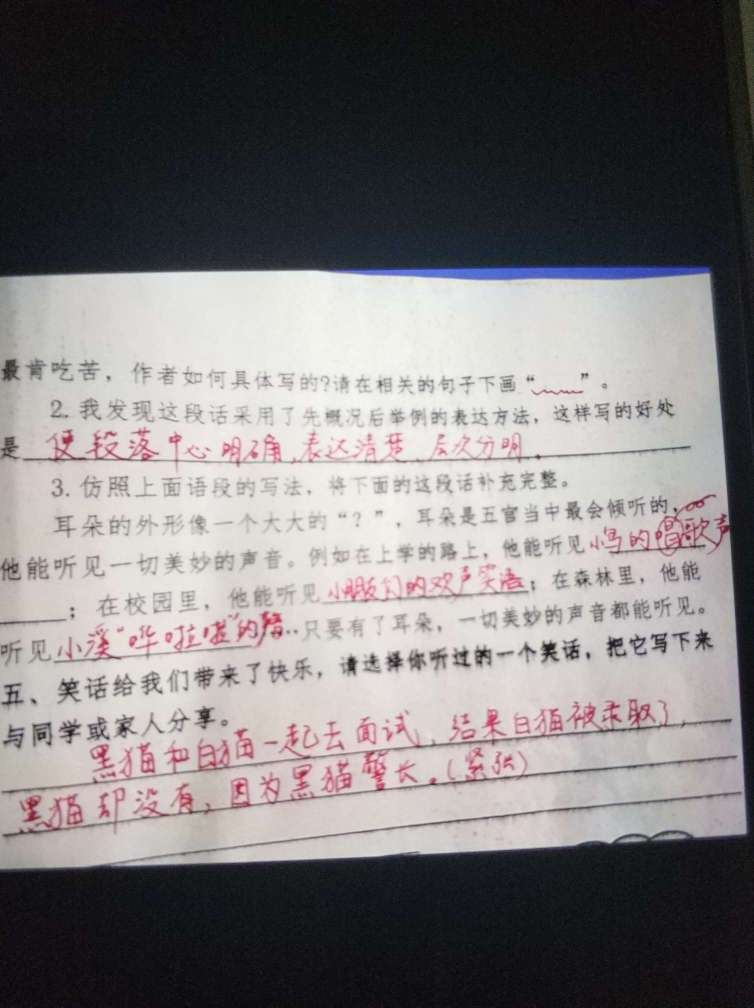 最肯吃苦，作者如何具体写的?请在相关的句子下画“﹏﹏”。
2.我发现这段话采用了先概况后举例的表达方法，这样写的好处
是使段落中心明确，表达清楚，层次分明。
3.仿照上面语段的写法，将下面的这段话补充完整。
耳朵的外形像一个大大的“？”，耳朵是五官当中最会倾听的，
他能听见一切美妙的声音。例如在上学的路上，他能听见小鸟的唱歌声
；在校园里，他能听见小朋友们的欢声笑语；在森林里，他能
听见小溪“哗啦啦”的……只要有了耳朵，一切美妙的声音都能听见。
五、笑话给我们带来了快乐，请选择你听过的一个笑话，把它写下来
与同学或家人分享。
黑猫和白猫一起去面试，结果白猫被录取了，
黑猫却没有，因为黑猫警长。（紧张）